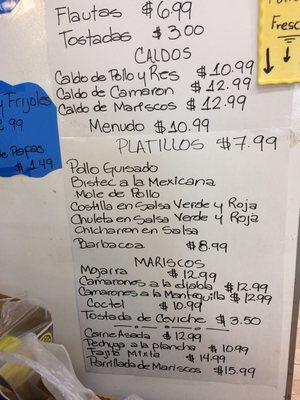 Flautas $6.99
Tostadas $3.00
CALDOS
Caldo de Pollo y Res $10.99
Caldo de Camaron $12.99
Caldo de Mariscos $12.99
Menudo $10.99
PLATILLOS $7.99
Pollo Guisado
Bistec a la Mexicana
Mole de Pollo
Costilla en Salsa Verde y Roja
Chuleta en Salsa Verde y Roja
Chicharron en Salsa
Barbacoa $8.99
MARISCOS
Mojarra $12.99
Camarones a la diabla $12.99
Camarones a la Mantequilla $12.99
Coctel $10.99
Tostada de Ceviche $3.50
Carne Asada $12.99
Pechuga a la plancha $10.99
Fajita Mixta $14.99
Parrillada de Mariscos $15.99
y Frijoles
99
de Papas
$1.49
Fresc